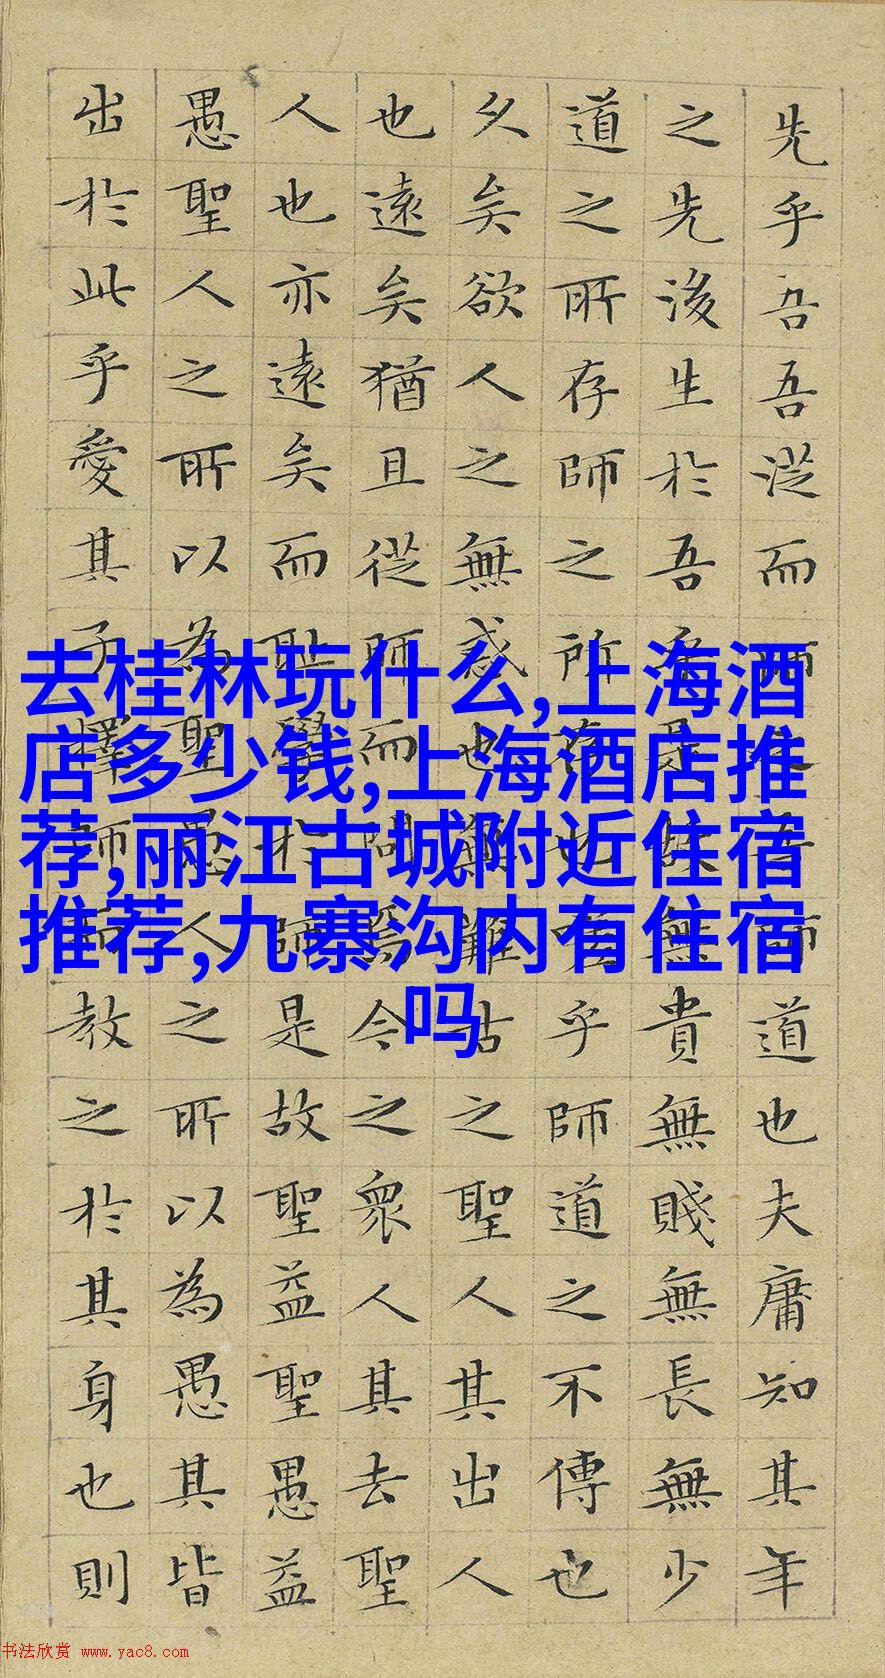 先乎吾吾從而師之吾師道也夫庸知其年
之先後生於吾乎是故無貴無賤無長無少
道之所存師之所存也嗟乎師道之不傳也
久矣欲人之無惑也無難古之聖人其出人
也遠矣猶且從師而問焉今之衆人其去聖
人也亦遠矣而恥學於師是故聖益聖愚益
愚聖人之所以為聖愚人之所以為愚其皆
出於此乎愛其子擇師而教之於其身也則
去桂林玩什么,上海酒
店多少钱,上海酒店推
荐,丽江古城附近住宿
推荐,九寨沟内有住宿
吗
书法欣赏 www.yac8.com